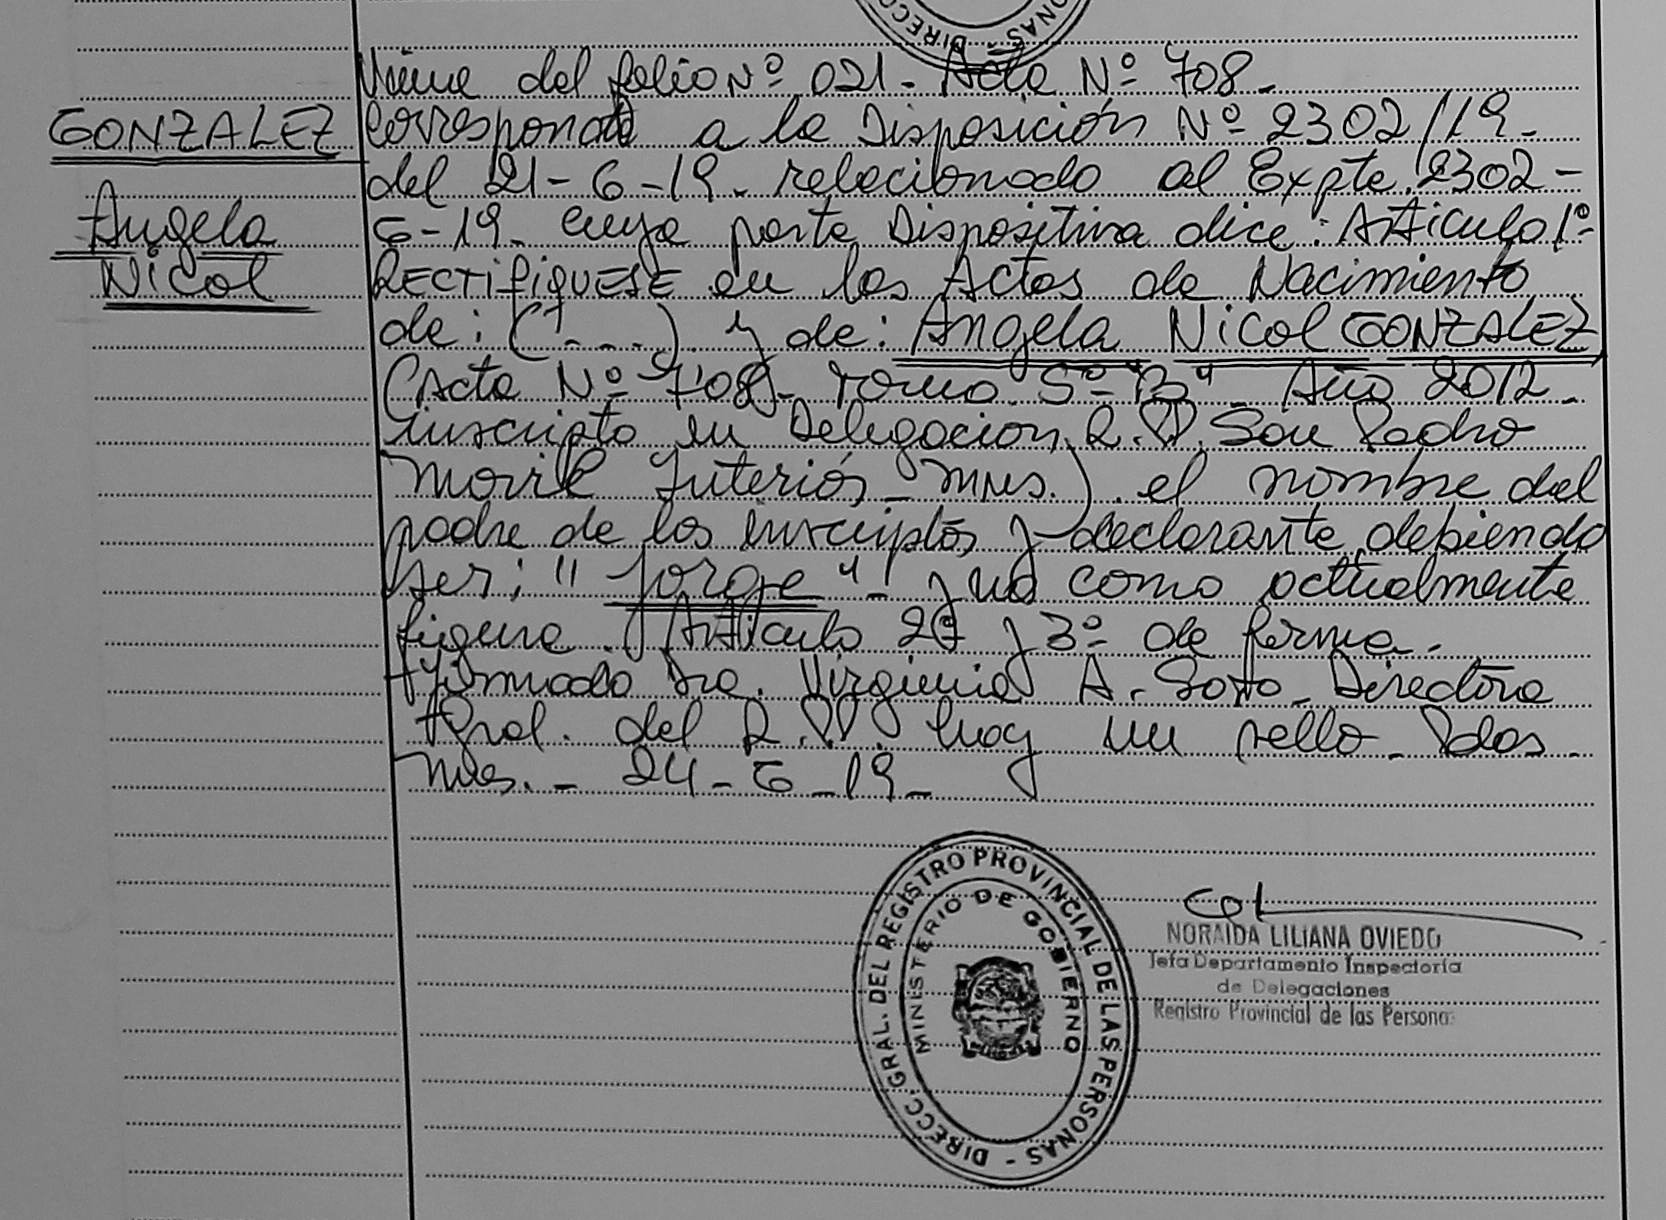 DIRECC
ONAS -
Viene del folio Nº 021 - Acta Nº 708 -
GONZALEZ
Angela
Nicol
Corresponde a la Disposición Nº 2302/19 -
del 21-6-19 - relacionado al Expte. 2302-
6-19 - cuya parte Dispositiva dice: Artículo 1º
RECTIFIQUESE en las Actas de Nacimiento
de: (----) y de: Angela Nicol GONZALEZ
(Acta Nº 708 - Tomo 5º "B" - Año 2012 -
inscripto en Delegacion R.P. San Pedro
Movil Interior - Mnes.) el nombre del
padre de los inscriptos y declarante, debiendo
ser: "Jorge" - y no como actualmente
figura. Artículo 2º y 3º de forma. -
Firmado Dra. Virginia A. Soto - Directora
Gral. del R.P. hay un sello - Pdas -
Mnes. - 24-6-19 -
DIRECC. GRAL. DEL REGISTRO PROVINCIAL DE LAS PERSONAS -
MINISTERIO DE GOBIERNO
NORAIDA LILIANA OVIEDO
Jefa Departamento Inspectoría
de Delegaciones
Registro Provincial de las Personas